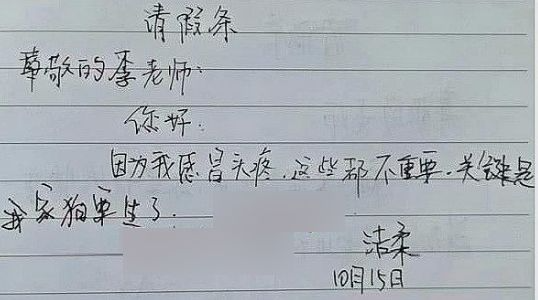 请假条
尊敬的李老师:
你好:
因为我感冒头疼.这些都不重要.关键是
我家狗要生了.
洁柔
10月15日